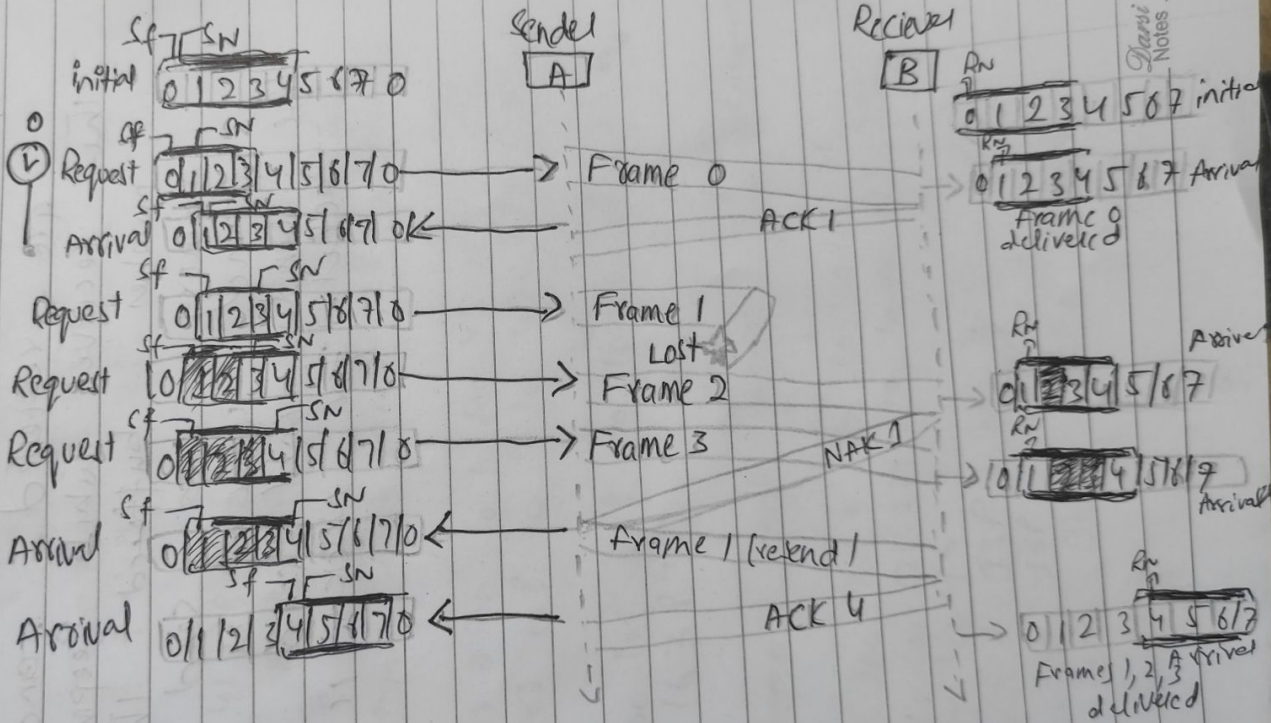 Sender
Reciever
Darsi
Notes
Sf SN
initial 0 1 2 3 4 5 6 7 0
A
B
RN
0 1 2 3 4 5 6 7 initial
0
Sf SN
Request 0 1 2 3 4 5 6 7 0
Frame 0
RN
0 1 2 3 4 5 6 7 Arrival
Frame 0
delivered
Sf SN
Arrival 0 1 2 3 4 5 6 7 0
ACK 1
Sf SN
Request 0 1 2 3 4 5 6 7 0
Frame 1
Lost
Sf SN
Request 0 1 2 3 4 5 6 7 0
Frame 2
RN
Arrival
0 1 2 3 4 5 6 7
Sf SN
Request 0 1 2 3 4 5 6 7 0
Frame 3
NAK 1
RN
0 1 2 3 4 5 6 7
Arrival
Sf SN
Arrival 0 1 2 3 4 5 6 7 0
Frame 1 (resend)
Sf SN
Arrival 0 1 2 3 4 5 6 7 0
ACK 4
RN
0 1 2 3 4 5 6 7
Arrival
Frames 1, 2, 3
delivered